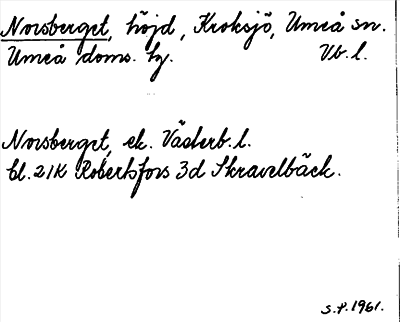 Norsberget, höjd, Kroksjö, Umeå sn.
Umeå doms. hg. Vb. l.
Norsberget, ek. Västerb. l.
bl. 21K Robertsfors 3d Skravelbäck.
S.P. 1961.